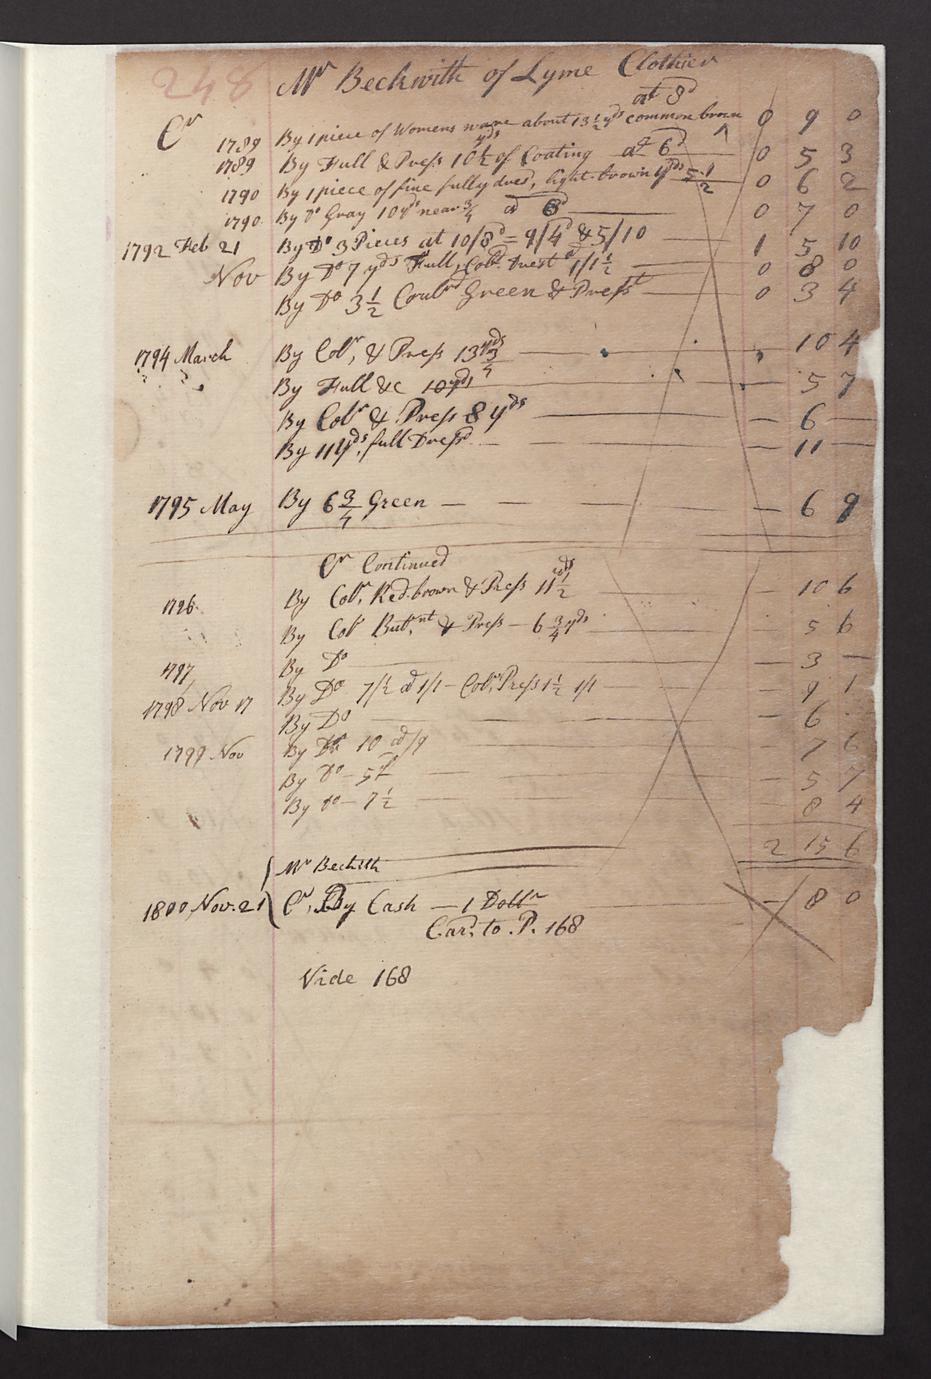 248 Mr Beckwith of Lyme Clothier
at 8d
Cr 1789 By 1 piece of Womens ware about 13 1/2 yds common brown 0 9 0
1789 By Full & Press 10 1/2 yds of Coating at 6d 0 5 3
1790 By 1 piece of fine fully dres, light-brown yds 5 1/2 0 6 2
1790 By Do Gray 10 yds near 3/4 at 8d 0 7 0
1792 Feb 21 By Do 3 Pieces at 10/8d = 9/4d & 5/10 1 5 10
Nov By Do 7 yds Full, Colr. Drest 1/1 1/2 0 8 0
By Do 3 1/2 Coulrd Green & Prest 0 3 4
1794 March By Colr, & Press 13 3/4 yds 10 4
By Full &c 10 yds 5 7
By Colr & Press 8 yds — 6 —
By 11 yds, full Dress — 11 —
1795 May By 6 3/4 Green — 6 9
Cr Continued
1796 By Colr. Red-brown & Press 11 1/2 yds — 10 6
By Colr & Press — 6 3/4 yds — 5 6
1797 By Do — 3 —
1798 Nov 17 By Do 7 1/2 at 1/1 — Colr. Press 1 1/2 1/1 — 9 1
By Do — 6
1799 Nov By Do 10 at /9 — 7 6
By Do — 5 — 5 7
By Do — 7 1/2 8 4
2 15 6
Mr Beckith
1800, Nov. 21 Cr, By Cash — 1 Dollr — 8 0
Car. to. P. 168
Vide 168